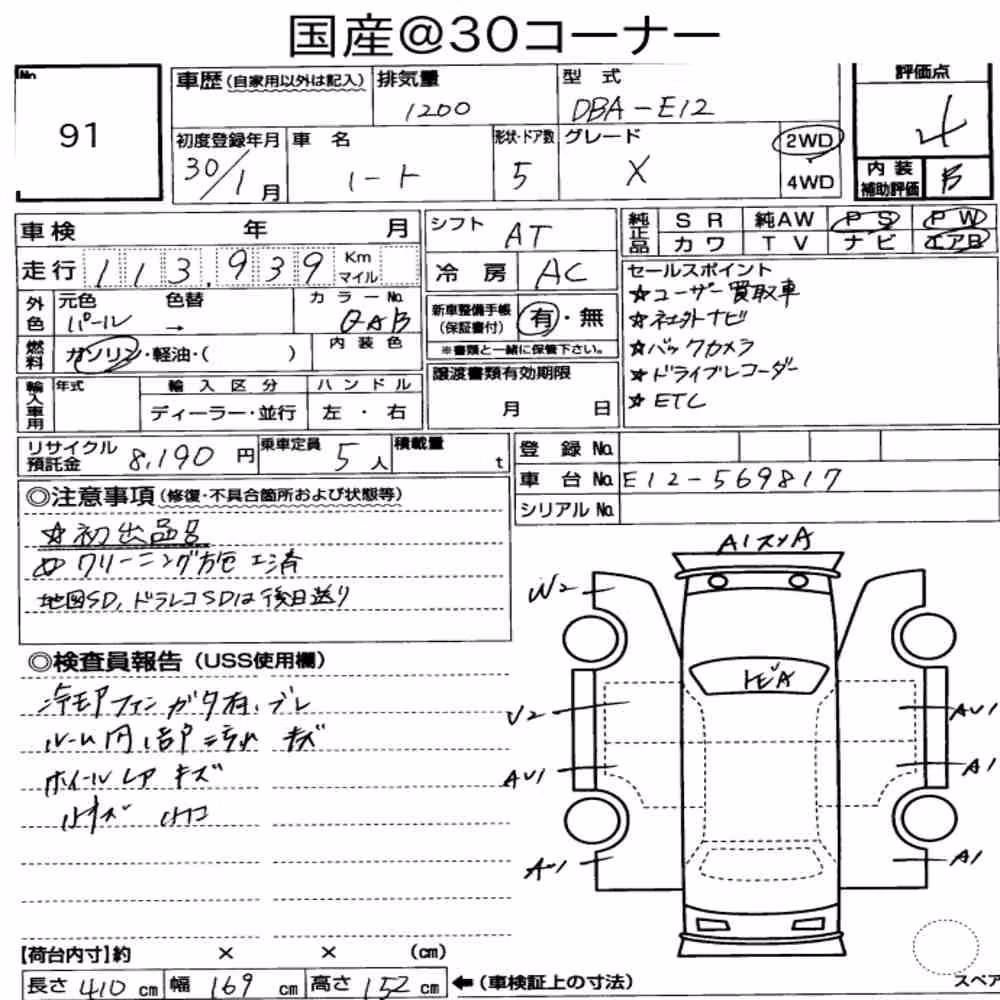 国産@30コーナー
No 91
車歴(自家用以外は記入) 排気量 1200
型 式 DBA-E12
評価点 4
初度登録年月 30/1月
車 名 ノート
形状・ドア数 5
グレード X
2WD
4WD
内 装 補助評価 B
車検 年 月
走行 113,939 Km マイル
シフト AT
冷 房 AC
純正品 SR 純AW PS PW
カワ TV ナビ エアB
外色 元色 パール 色替 →
カラーNo. QAB
内 装 色
燃料 ガソリン・軽油・( )
新車整備手帳 (保証書付) 有・無
※書類と一緒に保管下さい。
セールスポイント
☆ユーザー買取車
☆社外ナビ
☆バックカメラ
☆ドライブレコーダー
☆ETC
輸入車用 年式 輸 入 区 分 ハ ン ド ル
ディーラー・並行 左 ・ 右
譲渡書類有効期限
月 日
リサイクル預託金 8,190 円
乗車定員 5 人
積載量 t
登 録 No.
車 台 No. E12-569817
シリアル No.
◎注意事項(修復・不具合箇所および状態等)
☆初出品号
クリーニング施工済
地図SD,ドラレコSDは後日送り
◎検査員報告(USS使用欄)
ファンガタ有、ブレ
ルーム内 キズ
ホイールレア キズ
小キズ 小凹
A1 スリA
W2
U2
AU1
AU1
トビA
AU1
A1
A1
【荷台内寸】約 × × (cm)
長さ 410 cm 幅 169 cm 高さ 152 cm ←(車検証上の寸法)
スペア